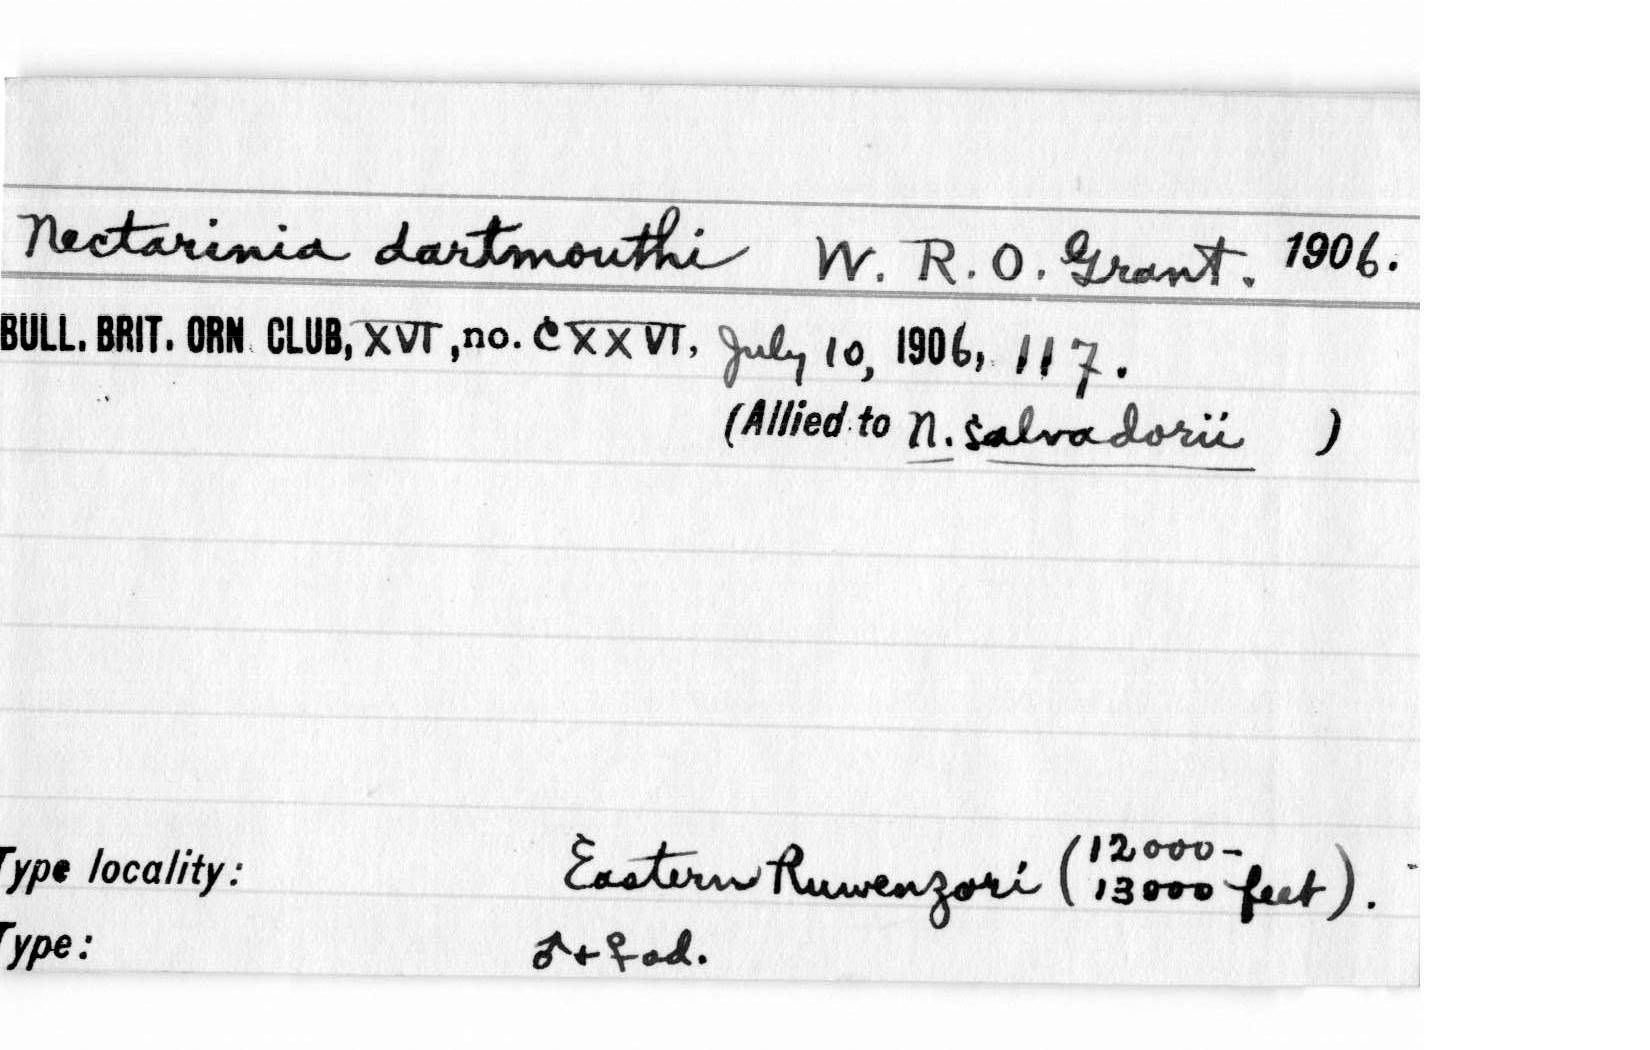 Nectarinia dartmouthi W. R. O. Grant. 1906.
BULL. BRIT. ORN. CLUB, XVI, no. CXXVI, July 10, 1906, 117.
(Allied to N. salvadorii )
Type locality: Eastern Ruwenzori (12000-13000 feet).
Type: ♂ + ♀ ad.